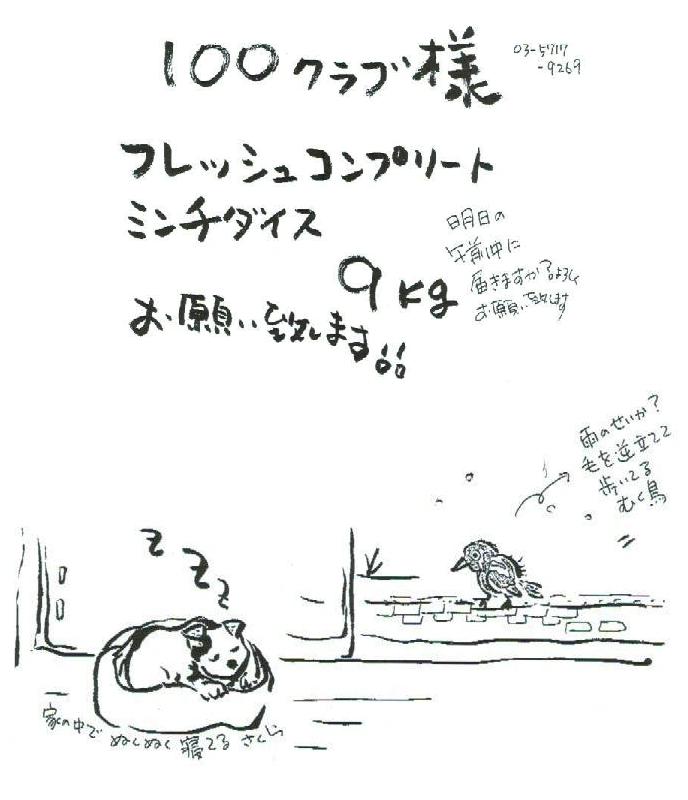 100クラブ様
03-5717
-9269
フレッシュコンプリート
ミンチダイス
9kg
お願い致します!!
明日の
午前中に
届きますか?よろしく
お願い致します
雨のせいか?
毛を逆立てて
歩いてる
むく鳥
z z z
家の中で ぬくぬく 寝てる さくら